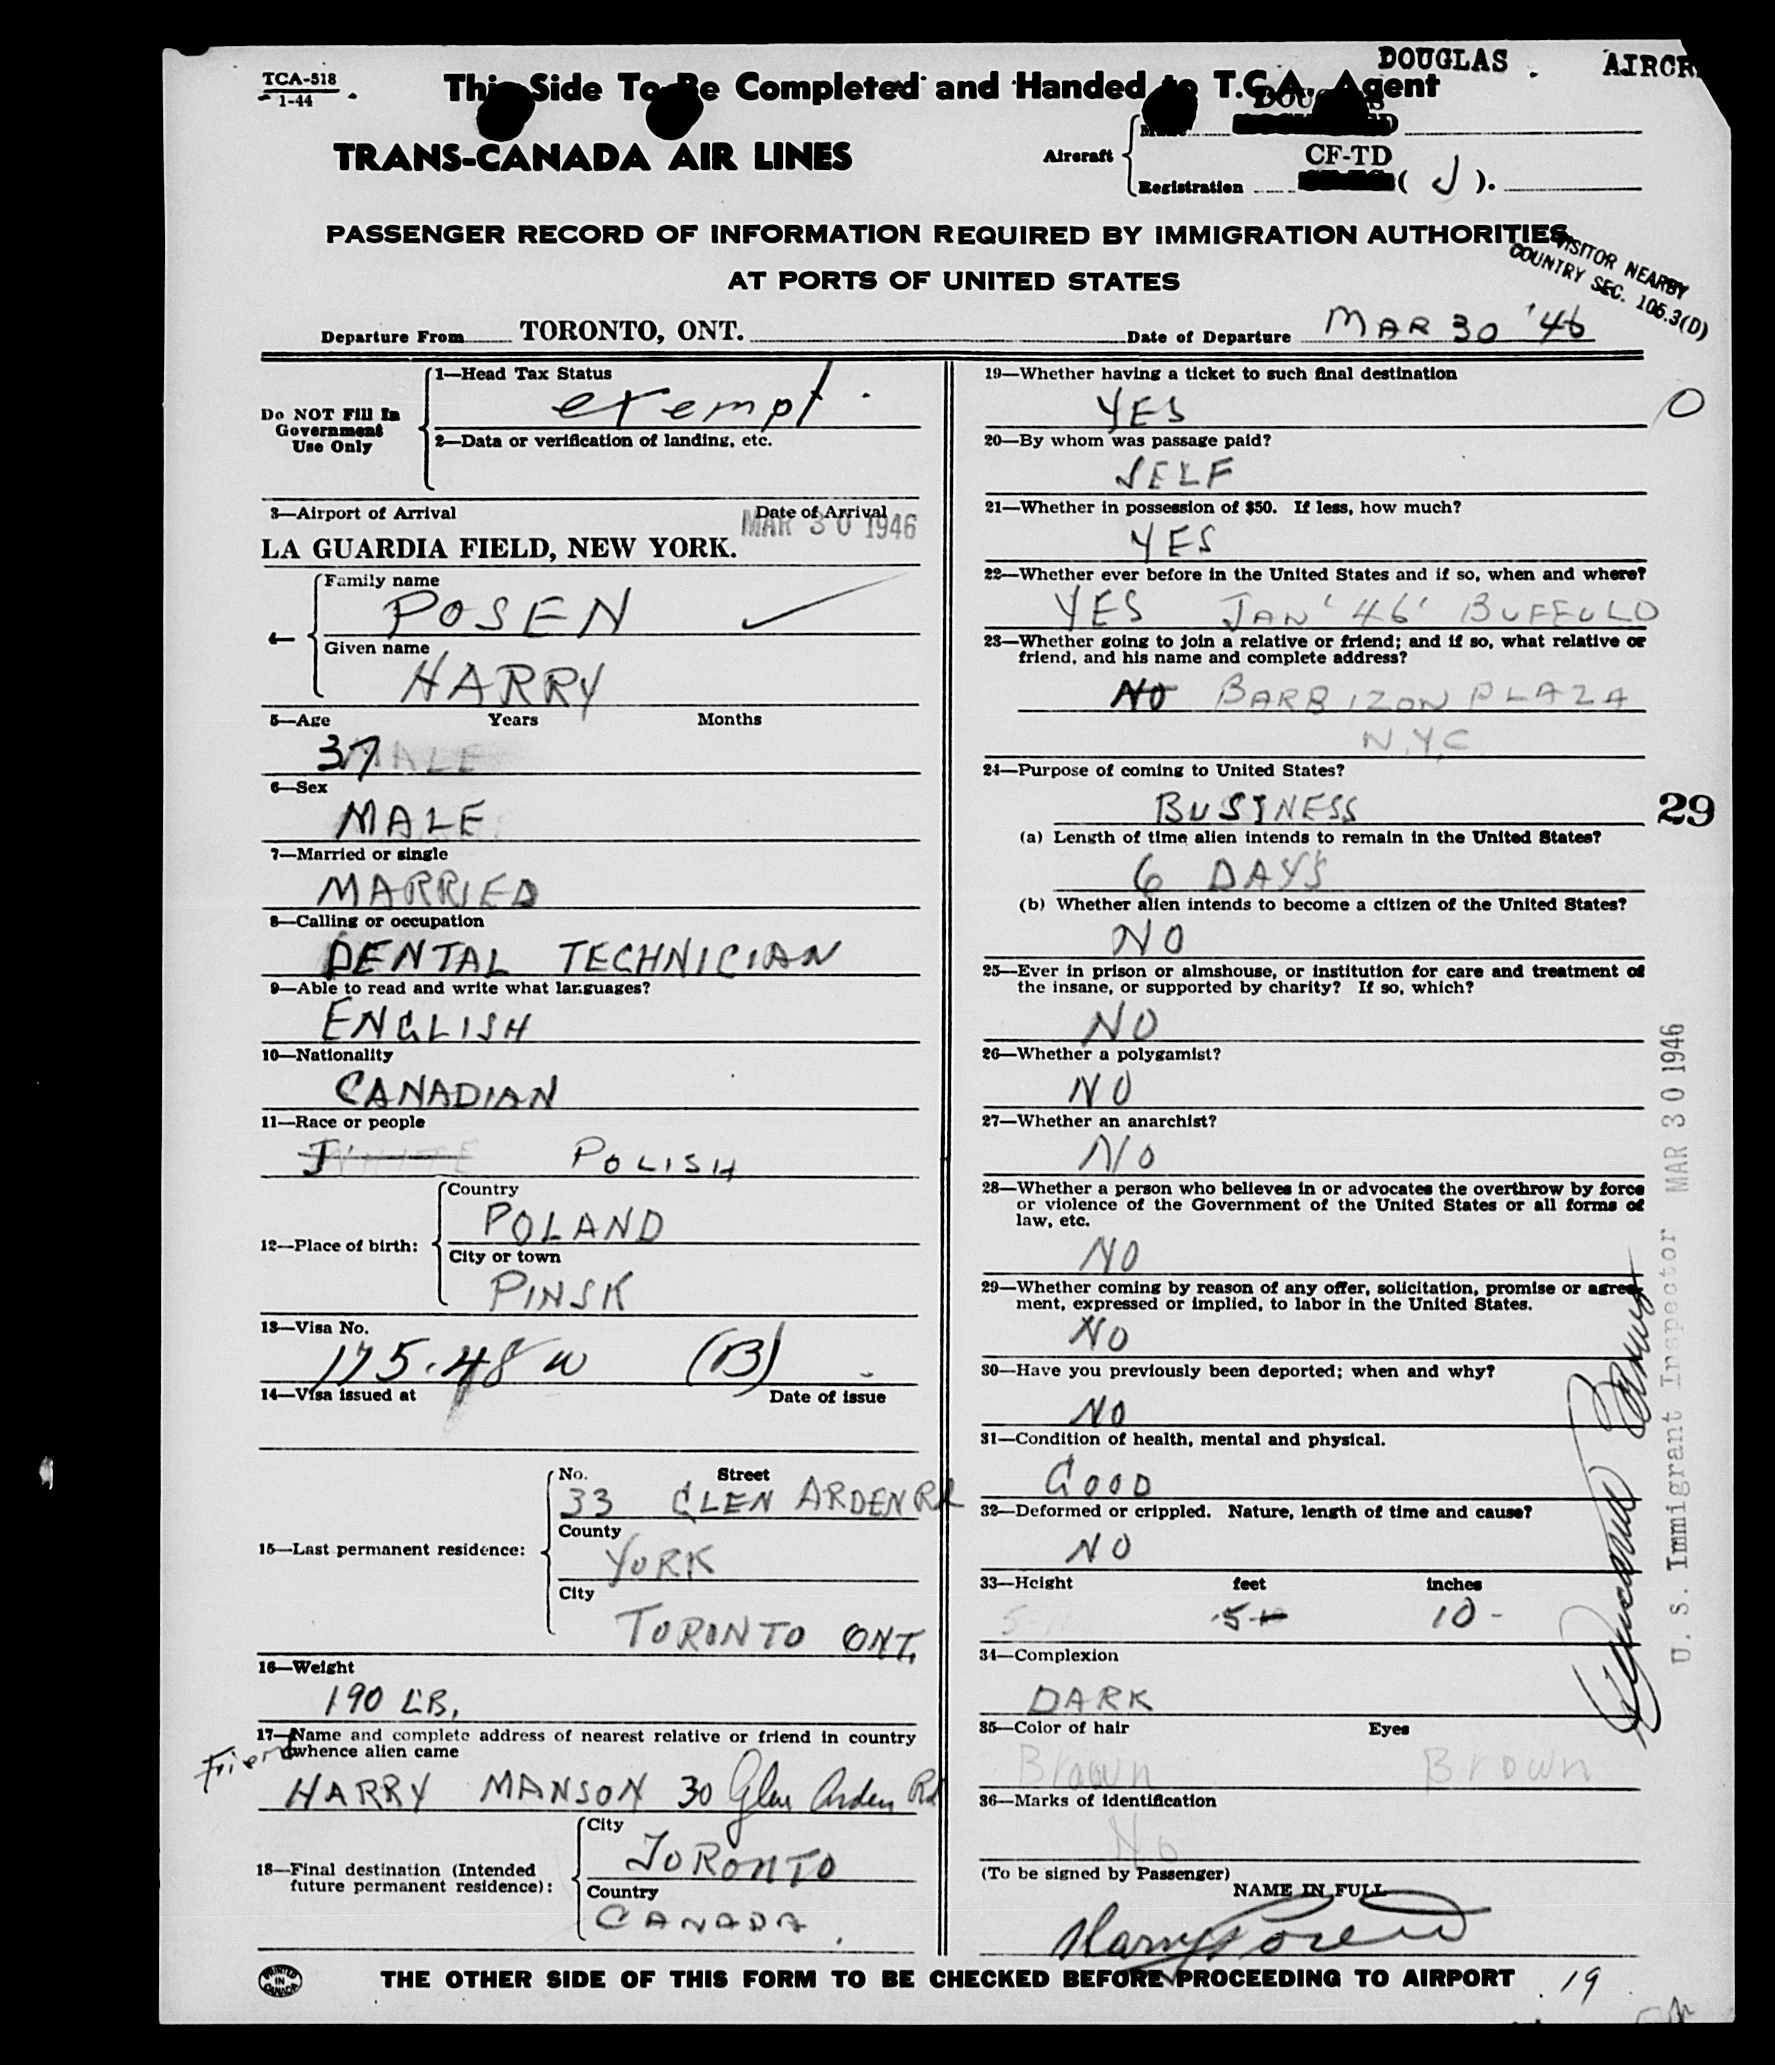 DOUGLAS AIRCR
TCA-518
1-44
This Side To Be Completed and Handed to T.C.A. Agent
DOUGLAS
TRANS-CANADA AIR LINES
Aircraft
CF-TD
Registration ( J ).
PASSENGER RECORD OF INFORMATION REQUIRED BY IMMIGRATION AUTHORITIES
AT PORTS OF UNITED STATES
VISITOR NEARBY
COUNTRY SEC. 105.3(D)
Departure From TORONTO, ONT. Date of Departure MAR 30 '46
Do NOT Fill In
Government
Use Only
1—Head Tax Status
exempt
2—Data or verification of landing, etc.
3—Airport of Arrival Date of Arrival
MAR 30 1946
LA GUARDIA FIELD, NEW YORK.
Family name
POSEN
Given name
HARRY
5—Age Years Months
37
6—Sex
MALE
7—Married or single
MARRIED
8—Calling or occupation
DENTAL TECHNICIAN
9—Able to read and write what languages?
ENGLISH
10—Nationality
CANADIAN
11—Race or people
WHITE POLISH
12—Place of birth:
Country
POLAND
City or town
PINSK
13—Visa No.
175.48 w (B)
14—Visa issued at Date of issue
15—Last permanent residence:
No. Street
33 GLEN ARDEN RD
County
YORK
City
TORONTO ONT.
16—Weight
190 LB.
17—Name and complete address of nearest relative or friend in country
whence alien came
Friend
HARRY MANSON 30 Glen Arden Rd
18—Final destination (Intended
future permanent residence):
City
TORONTO
Country
CANADA
19—Whether having a ticket to such final destination
YES
0
20—By whom was passage paid?
SELF
21—Whether in possession of $50. If less, how much?
YES
22—Whether ever before in the United States and if so, when and where?
YES JAN '46' BUFFULO
23—Whether going to join a relative or friend; and if so, what relative or
friend, and his name and complete address?
NO BARBIZON PLAZA
N.Y.C
24—Purpose of coming to United States?
BUSINESS
29
(a) Length of time alien intends to remain in the United States?
6 DAYS
(b) Whether alien intends to become a citizen of the United States?
NO
25—Ever in prison or almshouse, or institution for care and treatment of
the insane, or supported by charity? If so, which?
NO
26—Whether a polygamist?
NO
27—Whether an anarchist?
NO
28—Whether a person who believes in or advocates the overthrow by force
or violence of the Government of the United States or all forms of
law, etc.
NO
29—Whether coming by reason of any offer, solicitation, promise or agree-
ment, expressed or implied, to labor in the United States.
NO
30—Have you previously been deported; when and why?
NO
31—Condition of health, mental and physical.
GOOD
32—Deformed or crippled. Nature, length of time and cause?
NO
33—Height feet inches
5 10
34—Complexion
DARK
35—Color of hair Eyes
Brown Brown
36—Marks of identification
No
(To be signed by Passenger)
NAME IN FULL
Harry Posen
U. S. Immigrant Inspector MAR 30 1946
PRINTED
IN
CANADA
THE OTHER SIDE OF THIS FORM TO BE CHECKED BEFORE PROCEEDING TO AIRPORT
19